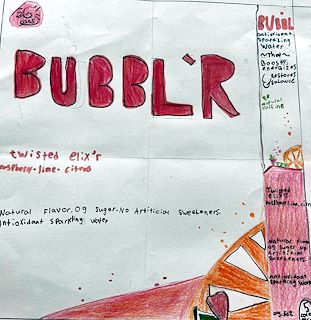 BUBBL'R
twisted elix'r
raspberry-lime-citrus
Natural flavor.0g sugar-No Artificial Sweeteners.
Antioxidant sparkling water
BUBBL
antioxidant
sparkling
water
That
Boosts
energizes
Restores
balance
natural
caffeine
Twisted
elix'r
Natural flavor
0g sugar No
Artificial
Sweeteners.
Antioxidant
Sparkling water